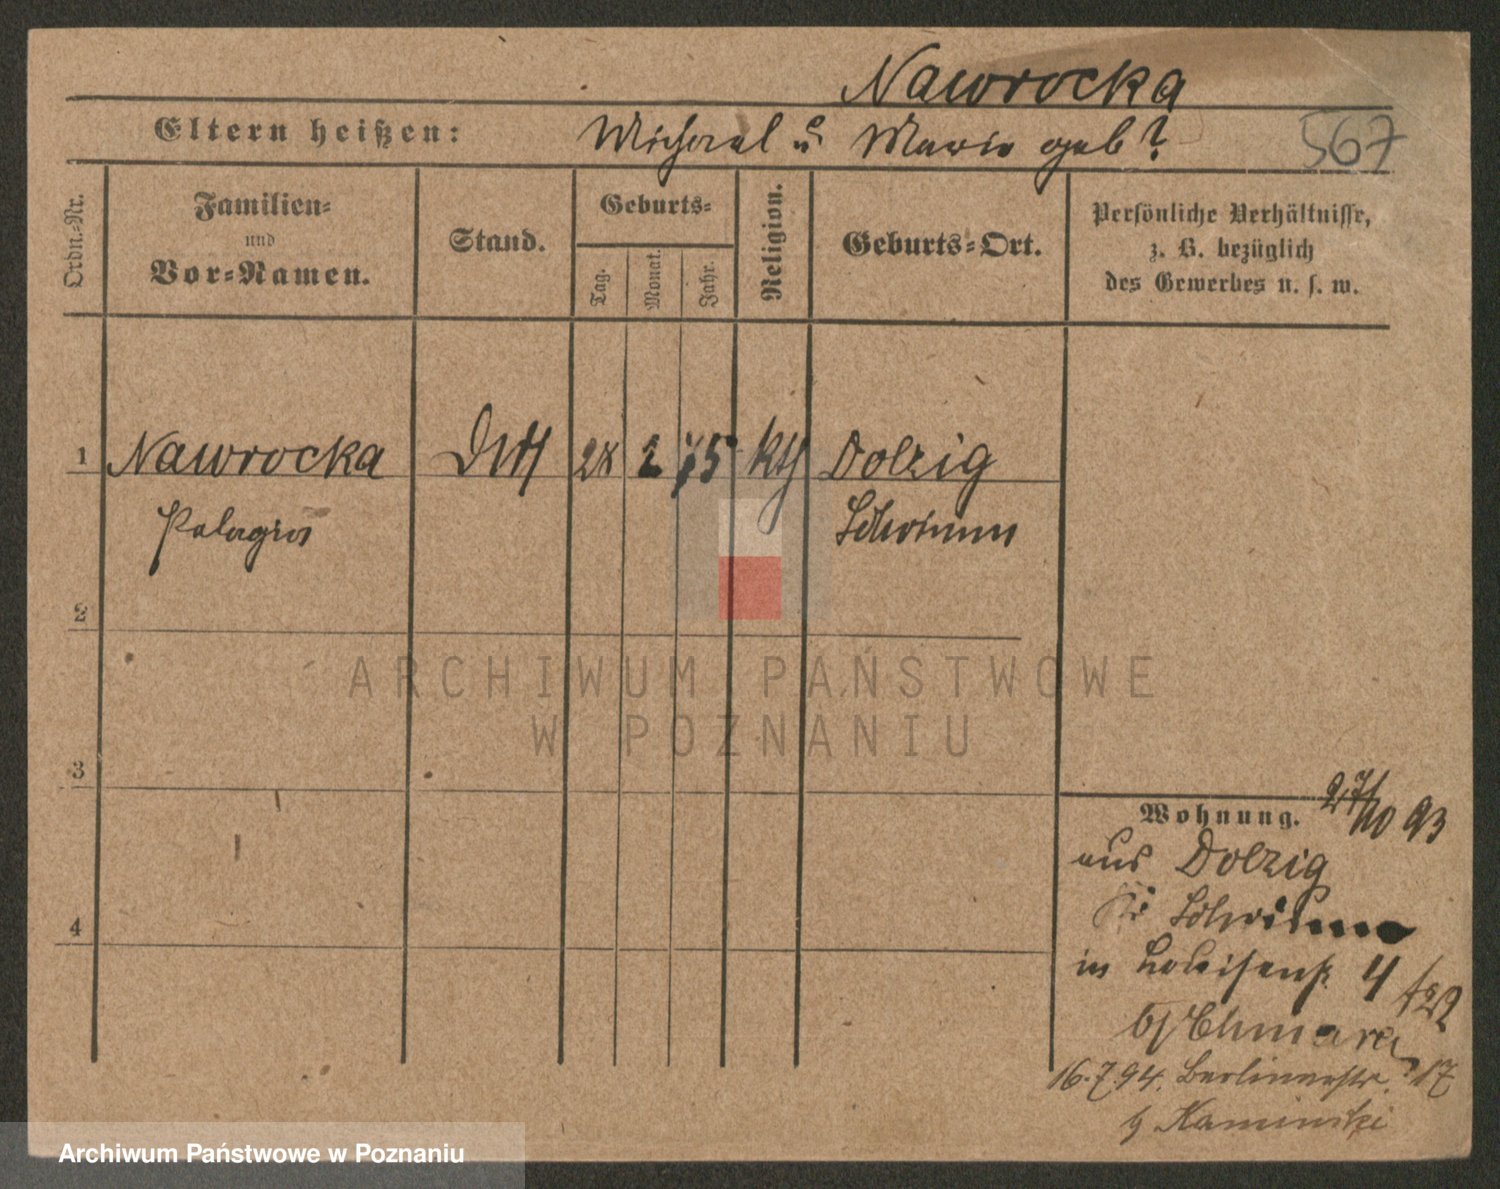 Nawrocka
Eltern heißen: Michael u Marie geb?
567
Ordn.-Nr.
Familien-
und
Vor-Namen.
Stand.
Geburts-
Tag.
Monat.
Jahr.
Religion.
Geburts-Ort.
Persönliche Verhältnisse,
z. B. bezüglich
des Gewerbes u. s. w.
1 Nawrocka 28 2 75 kth Dolzig
Pelagia Schrimm
2
ARCHIWUM PAŃSTWOWE
W POZNANIU
3
Wohnung. 27/10 93
aus Dolzig
Kr Schrimm
in Louisenstr. 4
b/
16.7.94. Berlinerstr. 17
b Kaminski
4
Archiwum Państwowe w Poznaniu